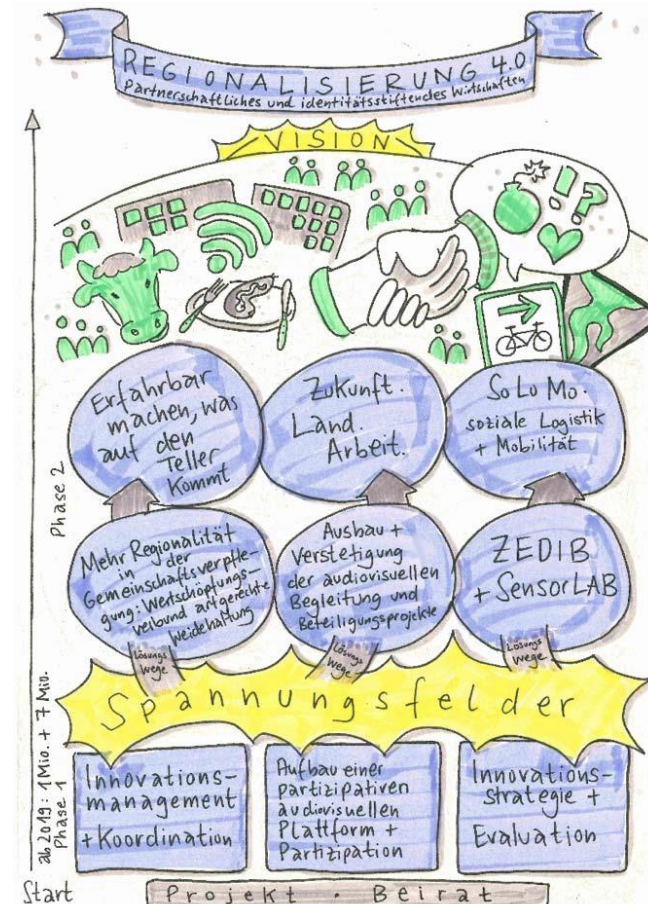 REGIONALISIERUNG 4.0
Partnerschaftliches und identitätsstiftendes Wirtschaften
VISION
!?
Erfahrbar
machen, was
auf den
Teller
kommt
Zukunft.
Land.
Arbeit.
SoLoMo.
soziale Logistik
+ Mobilität
Phase 2
Mehr Regionalität
in der
Gemeinschaftsverpfle-
gung: Wertschöpfungs-
verbund artgerechte
Weidehaltung
Ausbau +
Verstetigung
der audiovisuellen
Begleitung und
Beteiligungsprojekte
ZEDIB
+ SensorLAB
Lösungs
Wege
Lösungs
Wege
Lösungs
Wege
Spannungsfelder
ab 2019: 1 Mio. + 7 Mio.
Phase 1
Innovations-
management
+ Koordination
Aufbau einer
partizipativen
audiovisuellen
Plattform +
Partizipation
Innovations-
strategie +
Evaluation
Start
Projekt · Beirat